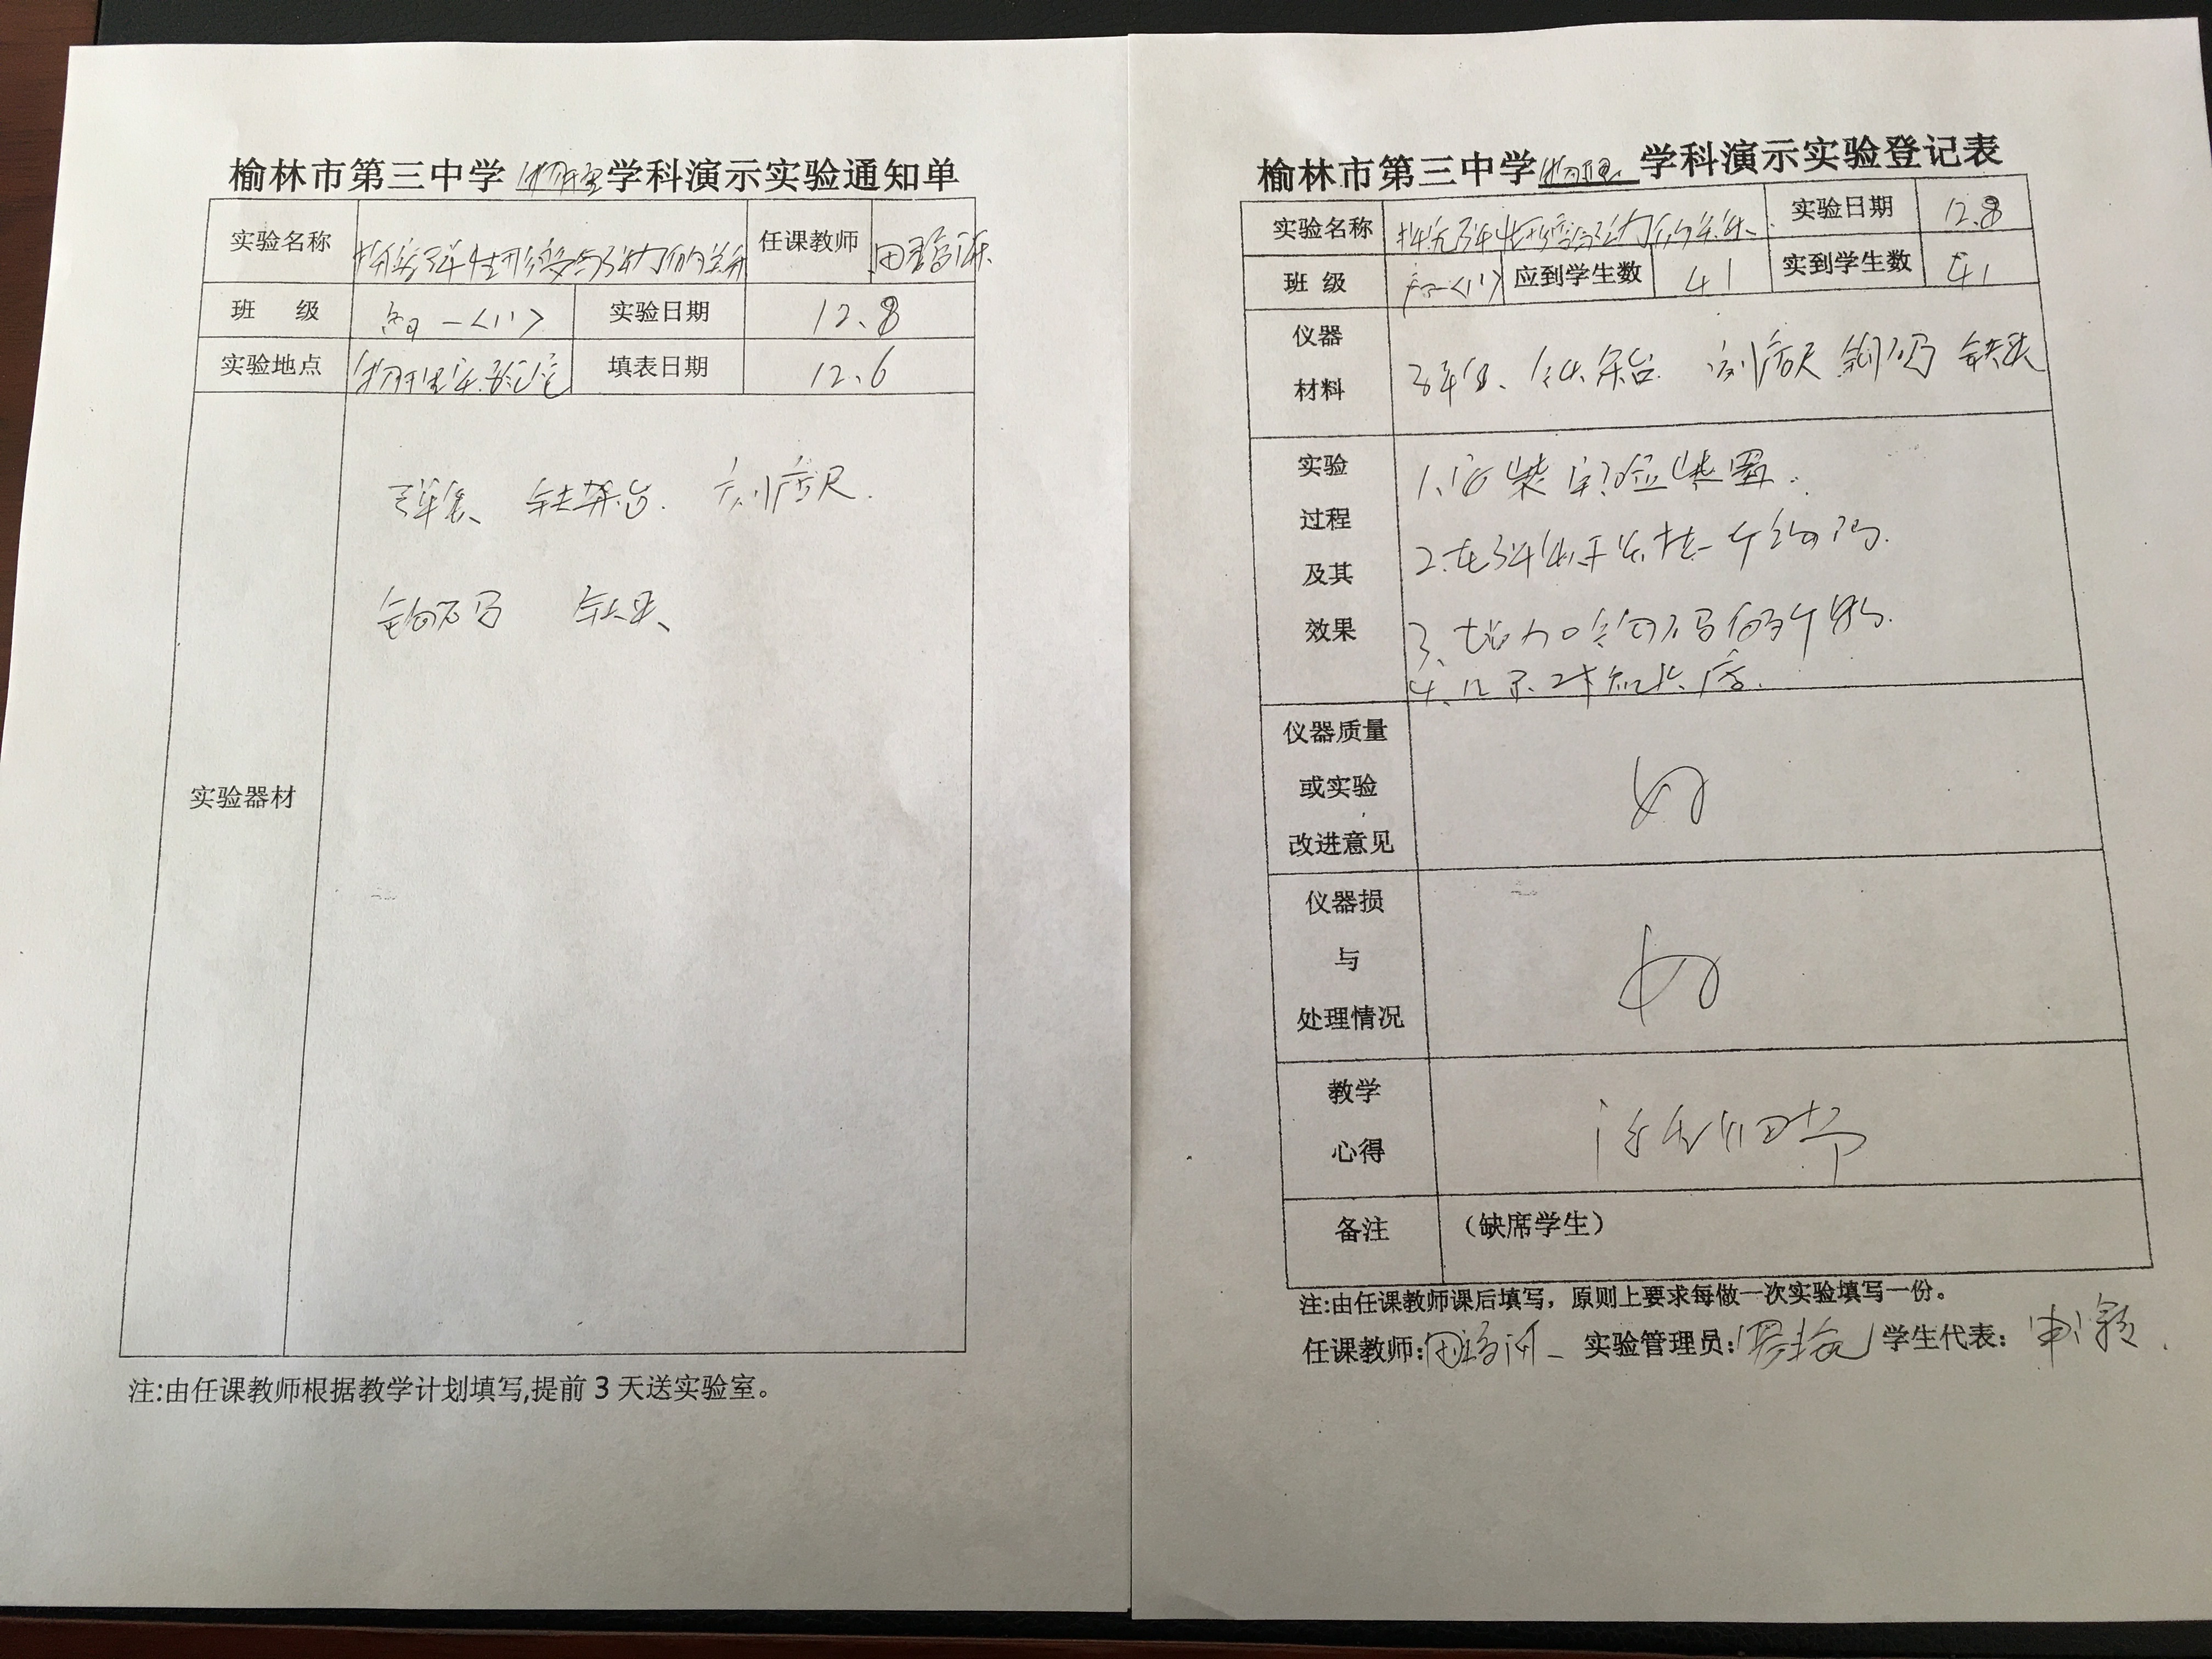 榆林市第三中学 物理 学科演示实验通知单
实验名称 探究弹性形变与弹力的关系 任课教师
班 级 高一<11> 实验日期 12.8
实验地点 物理实验室 填表日期 12.6
实验器材
弹簧、铁架台. 刻度尺.
钩码 铁夹、
注:由任课教师根据教学计划填写,提前3天送实验室。
榆林市第三中学 物理 学科演示实验登记表
实验名称 探究弹性形变与弹力的关系. 实验日期 12.8
班 级 高一<11> 应到学生数 41 实到学生数 41
仪器
材料
弹簧、铁架台. 刻度尺 钩码 铁夹
实验
过程
及其
效果
1.安装实验装置.
2.在弹簧下端挂一个钩码.
3、增加钩码的个数.
4、记录对应长度.
仪器质量
或实验
改进意见
好
仪器损
与
处理情况
好
教学
心得
备注 （缺席学生）
注:由任课教师课后填写，原则上要求每做一次实验填写一份。
任课教师: 实验管理员: 学生代表: